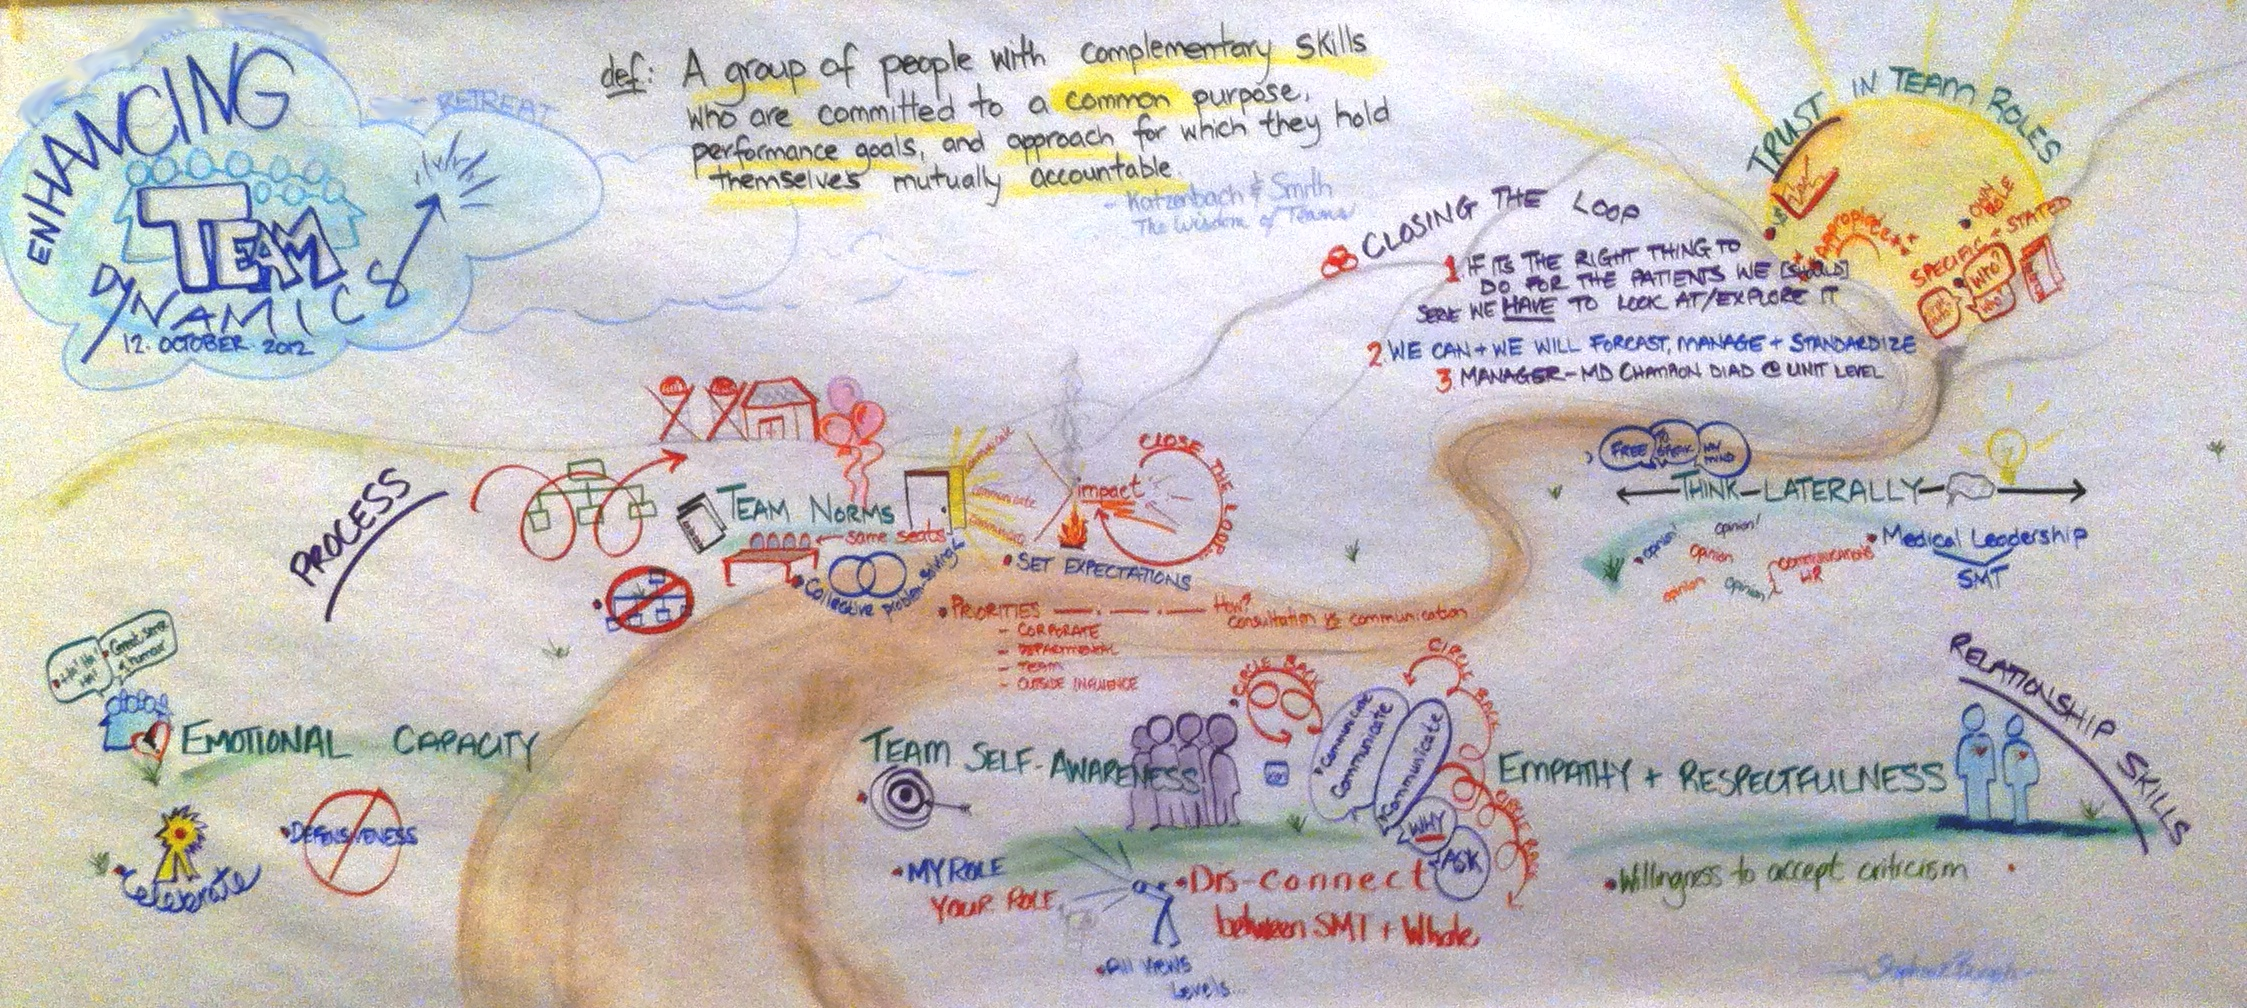 ENHANCING
TEAM
DYNAMICS
12. OCTOBER 2012
RETREAT
def: A group of people with complementary skills
who are committed to a common purpose,
performance goals, and approach for which they hold
themselves mutually accountable.
- Katzenbach & Smith
The Wisdom of Teams
TRUST IN TEAM ROLES
OWN ROLE
SPECIFIC + STATED
WHO?
WHO?
CLOSING THE LOOP
1 IF ITS THE RIGHT THING TO
DO FOR THE PATIENTS WE [SHOULD]
SERVE WE HAVE TO LOOK AT/EXPLORE IT
2. WE CAN + WE WILL FORCAST, MANAGE + STANDARDIZE
3. MANAGER-MD CHAMPION DIAD @ UNIT LEVEL
PROCESS
TEAM NORMS
same seats
Collective problem solving
Communicate
Communicate
impact
CLOSE THE LOOP
• SET EXPECTATIONS
• PRIORITIES
- CORPORATE
- DEPARTMENTAL
- TEAM
- OUTSIDE INFLUENCE
How?
consultation vs communication
FREE TO SPEAK MY MIND
THINK LATERALLY
• opinion!
opinion!
opinion
opinion
opinion
COMMUNICATIONS
HR
• Medical Leadership
SMT
RELATIONSHIP SKILLS
• Ha! Ha! Ha!
• Great sense of humour
EMOTIONAL CAPACITY
• Celebrate
• DEFENSIVENESS
TEAM SELF-AWARENESS
• CIRCLE BACK
CIRCLE BACK
CIRCLE BACK
• Communicate
Communicate
Communicate
WHY
ASK
• MY ROLE
YOUR ROLE
• Dis-connect
between SMT + Whole
• All views
Levels...
EMPATHY + RESPECTFULNESS
• Willingness to accept criticism